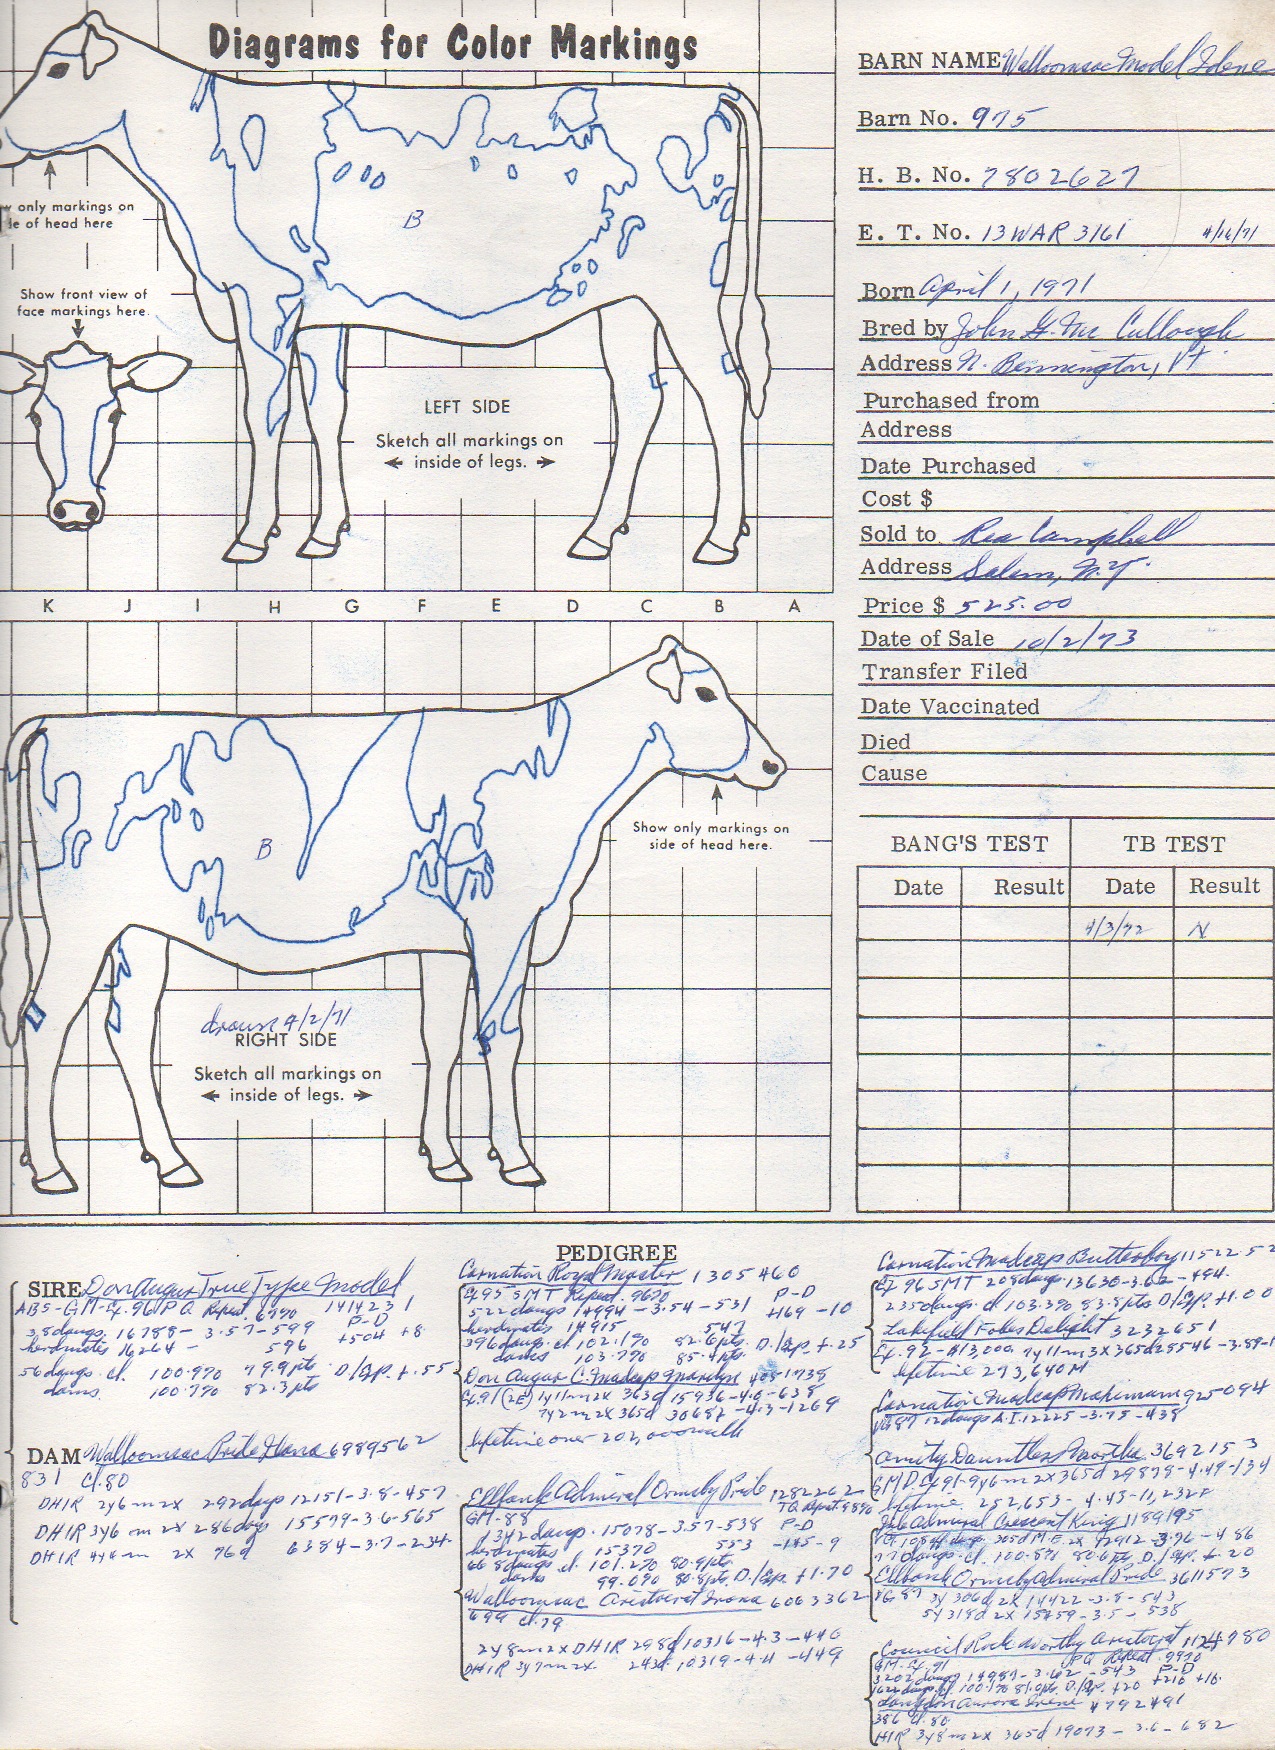 Diagrams for Color Markings
only markings on
of head here
Show front view of
face markings here.
B
LEFT SIDE
Sketch all markings on
inside of legs.
K J I H G F E D C B A
B
Show only markings on
side of head here.
drawn 4/2/71
RIGHT SIDE
Sketch all markings on
inside of legs.
BARN NAME Walloomsac Model Idene
Barn No. 975
H. B. No. 7802627
E. T. No. 13WAR 3161 4/16/71
Born April 1, 1971
Bred by John G. McCullough
Address N. Bennington, Vt.
Purchased from
Address
Date Purchased
Cost $
Sold to Rea Campbell
Address Salem, N.Y.
Price $ 525.00
Date of Sale 10/2/73
Transfer Filed
Date Vaccinated
Died
Cause
BANG'S TEST TB TEST
Date Result Date Result
4/3/72 N
PEDIGREE
SIRE Don Augur True Type Model
ABS-GM-Ex. 96 P.Q. Repeat. 69% 1414231
38 daugs. 16788 - 3.57-599 P-D
herdmates 16264 - 596 +504 +8
56 daugs. cl. 100.9% 79.9 pts D/Sp. +.55
dams 100.7% 82.3 pts
DAM Walloomsac Pride Ilana 6989562
831 cl. 80
DHIR 2y6m 2x 292 days 12151-3.8-457
DHIR 3y6m 2x 286 days 15579-3.6-565
DHIR 4y4m 2x 76d 6384-3.7-234
Carnation Royal Master 1305460
Ex 95 SMT Repeat. 96% P-D
522 daugs 14994-3.54-531 +169 -10
herdmates 14915 547
396 daugs. cl. 102.1% 82.6 pts. D/Sp. +.25
dams 103.7% 85.4 pts.
Don Augur C. Madcap Marilyn
Ex. 91 (2E) 1y11m 2x 363d 15936-4.0-638
7y2m 2x 365d 30682-4.3-1269
lifetime over 202,000 milk
Ellbank Admiral Ormsby Pride 1282262
GM-88 T.Q. Repeat 99%
1342 daugs. 15078-3.57-538 P-D
herdmates 15370 553 -145 -9
668 daugs. cl. 101.2% 80.9 pts.
dams 99.0% 80.8 pts. D/Sp. +1.70
Walloomsac Aristocrat Irona 6063362
699 cl. 79
2y8m 2x DHIR 298d 10316-4.3-440
DHIR 3y7m 2x 243d 10319-4.4-449
Carnation Madcap Butterboy 115225
Ex 96 SMT 208 daugs 13630-3.62-494.
235 daugs. cl 103.3% 83.8 pts D/Sp. +1.00
Lakefield Fobes Delight 3232651
Ex. 92-$13,000. 7y11m 3X 365d 28546-3.89-1
lifetime 293,640M
Carnation Madcap 925094
VG 87 12 daugs A.I. 12225-3.75-458
Amity Dauntless Martha 3692153
GMD Ex 91-9y6m 2x 365d 29878-4.49-134
lifetime 252,653-4.43-11,232F
Admiral Crescent King 1189195
77 daugs. cl. 100.8% 80.6 pts. D/Sp. +.20
Ellbank Ormsby Admiral Pride 3611573
VG 87 3y 306d 2X 14422-3.8-543
5y 318d 2x 15459-3.5-538
Council Rock Worthy Aristocrat 1124980
GM-Ex. 91 P.Q. Repeat. 99%
Langdon Aurora Irene 4792491
386 cl. 80
DHIR 3y8m 2x 365d 19073-3.6-682